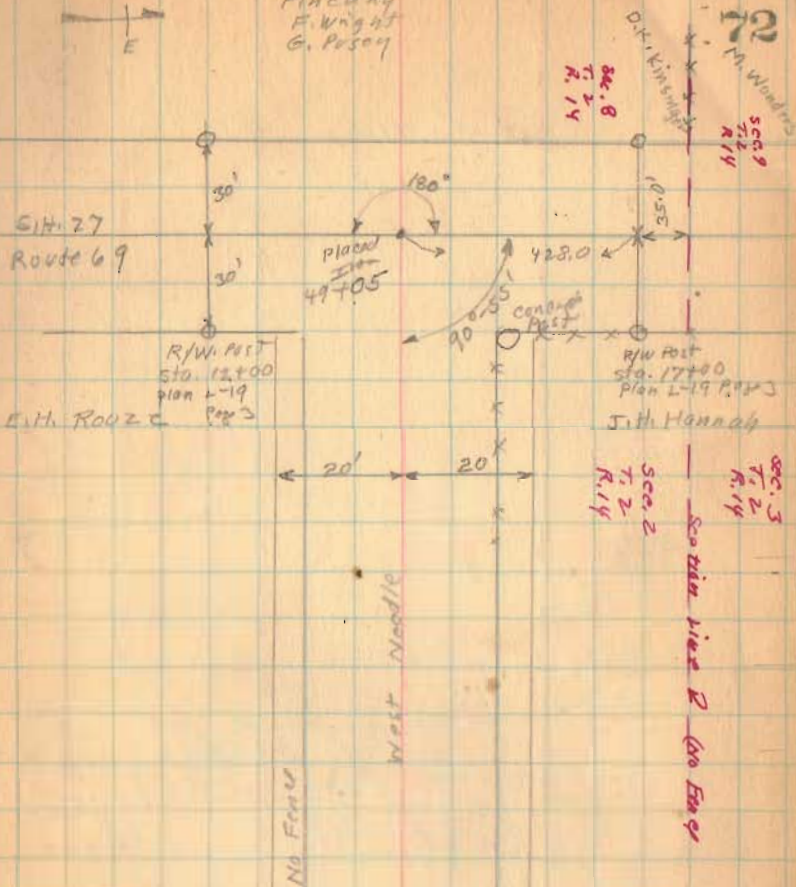 72
E
F. Wright
G. Posey
D.K. Kinsinger
M. Wonders
Sec. 8
T. 2
R. 14
Sec. 9
T. 2
R. 14
30'
180°
35.0'
S.H. 27
Route 69
30'
Placed
Iron
49+05
428.0
90° 55'
Concrete
Post
R/W. Post
Sta. 12+00
Plan L-19
Page 3
R/W Post
Sta. 17+00
Plan L-19 Page 3
E.H. Rouze
J.H. Hannah
20'
20
Sec. 2
T. 2
R. 14
Sec. 3
T. 2
R. 14
Section Line
(No Fence
West Needle
No Fence